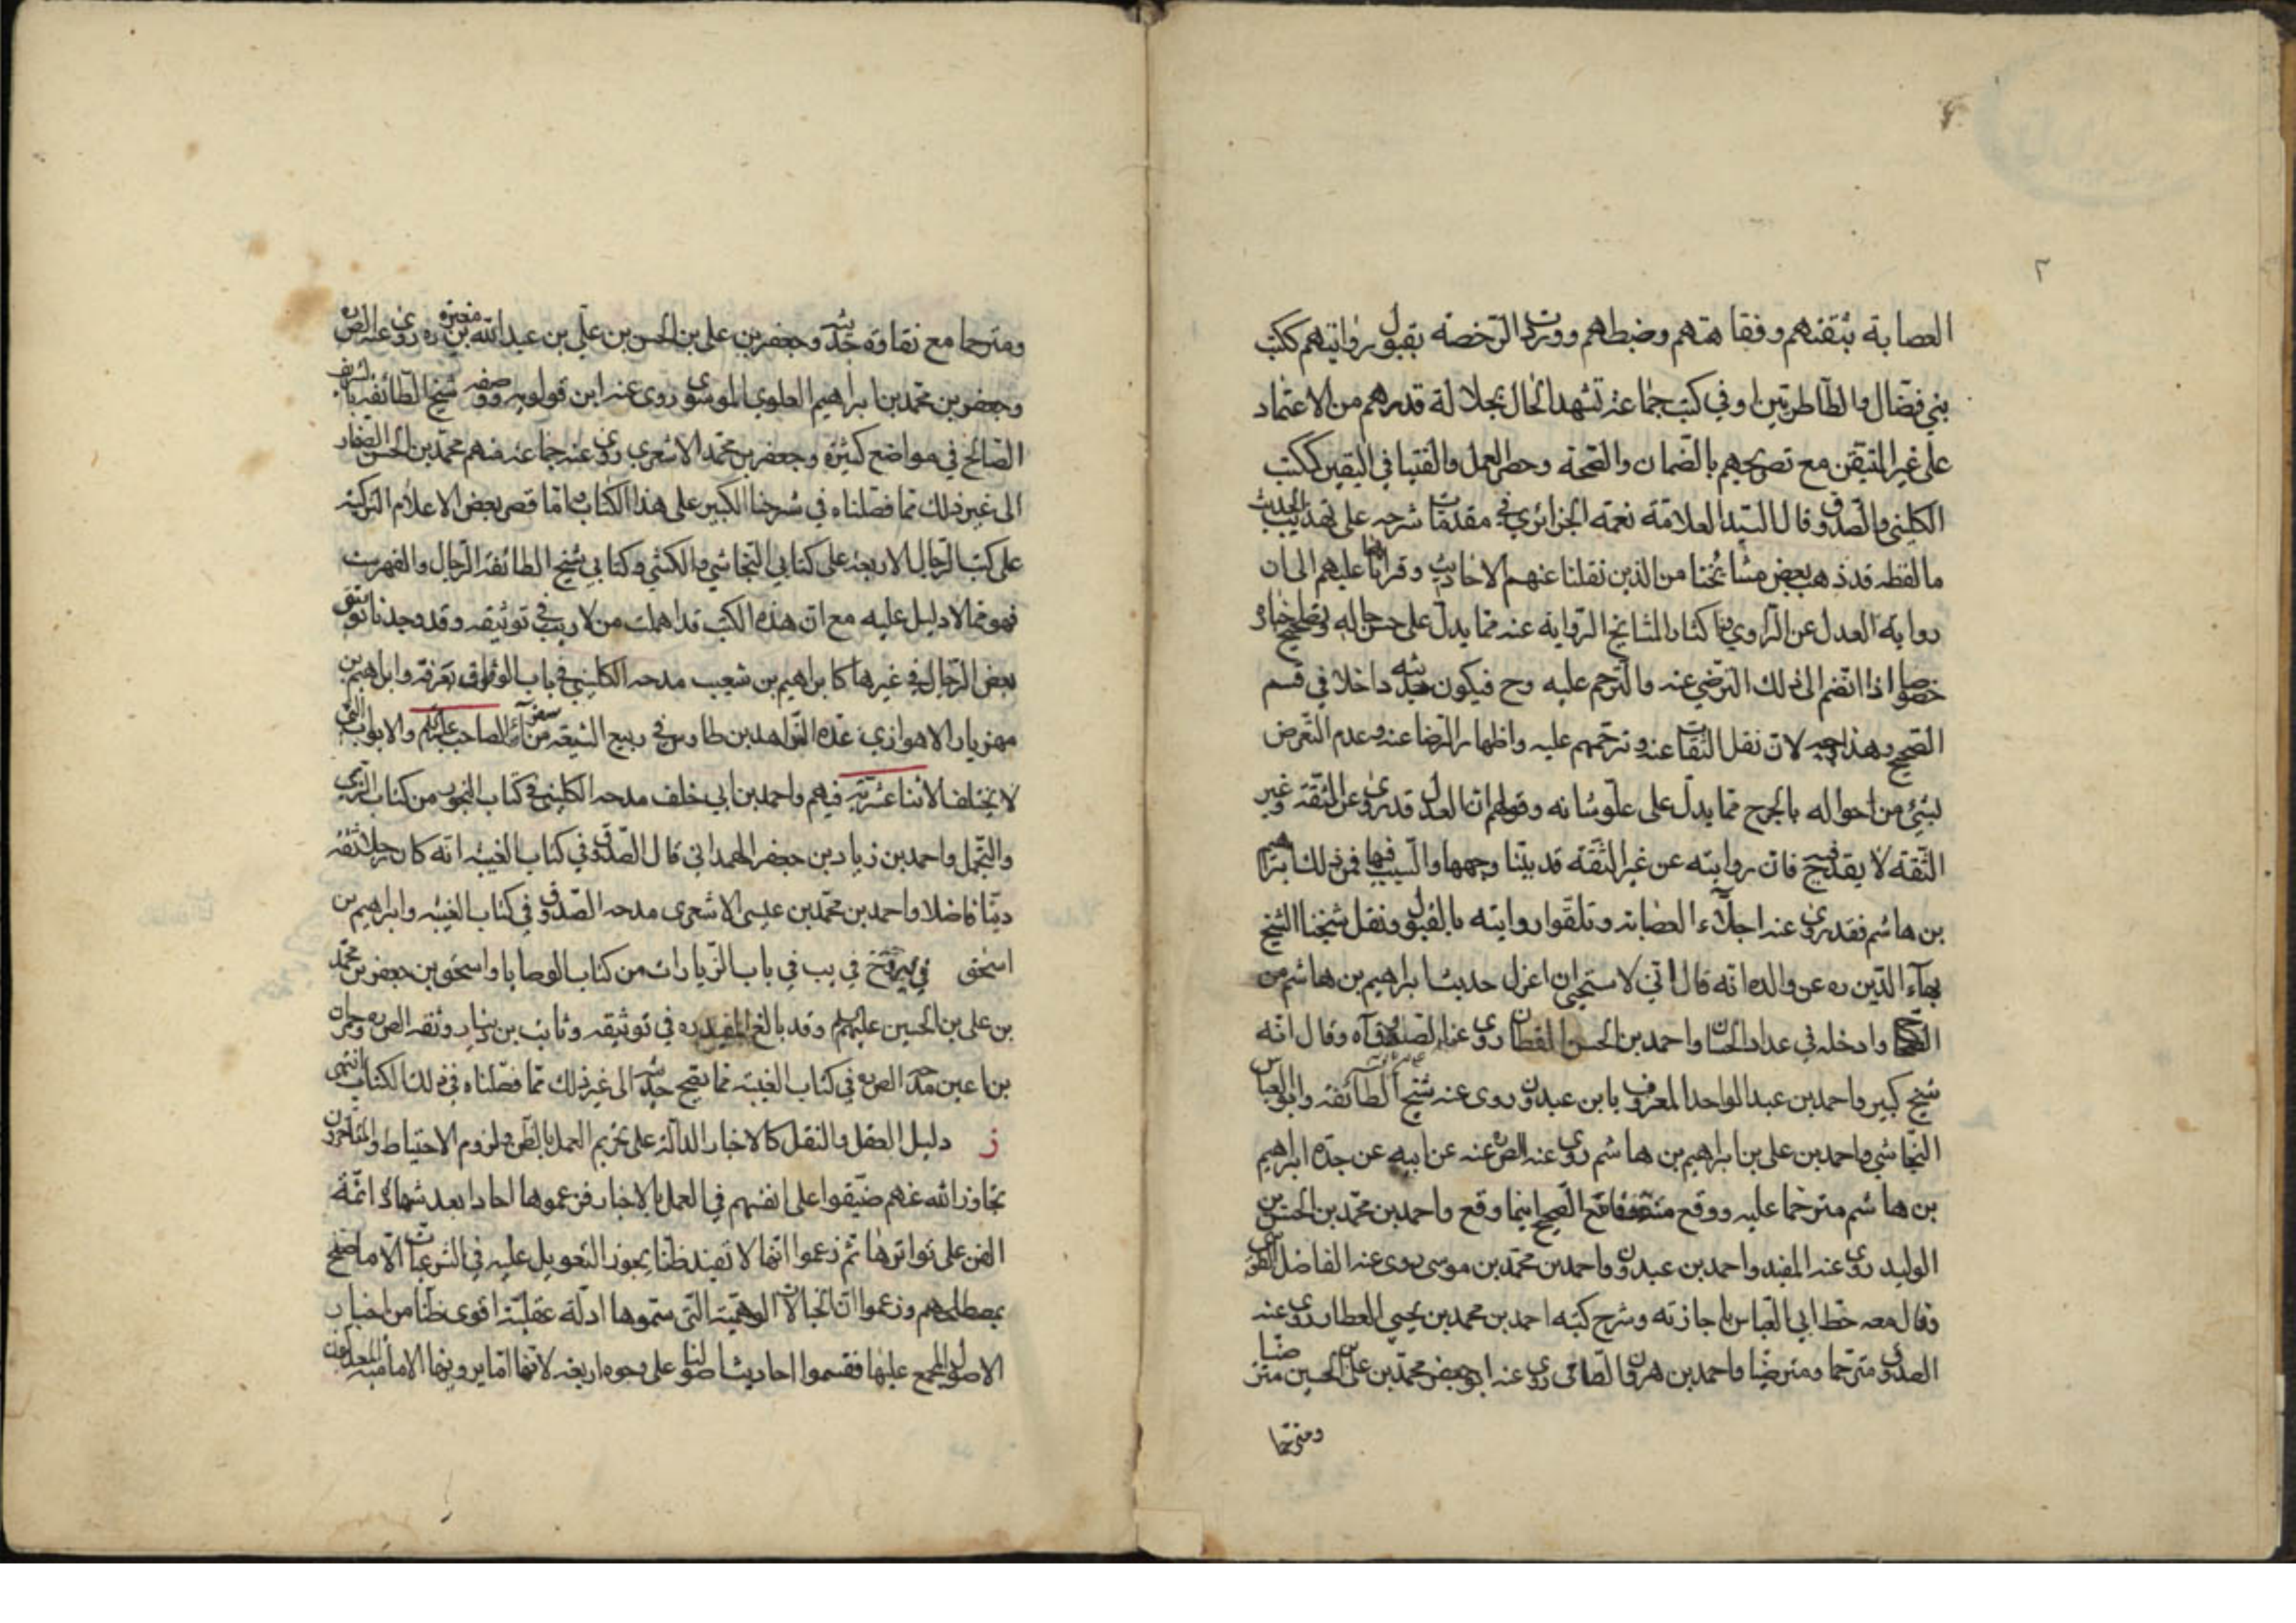 ٢
العصابة بثقتهم وفقاهتهم وضبطهم وورود الرخصة بقبول رواتيهم ككتب
بني فضال والطاطريين او في كتب جماعة تشهد الحال بجلالة قدرهم من الاعتماد
على غير المتيقن مع تصريحهم بالضمان والصحة وحصر العمل والفتيا في اليقين ككتب
الكليني والصدوق وقال السيد العلامة نعمة الجزائري في مقدمات شرحه على تهذيب الحديث
ما لفظه قد ذهب بعض مشائخنا من الذين نقلنا عنهم الاحاديث وقرأناها عليهم الى ان
رواية العدل عن الراوي واكثار المشائخ الرواية عنه مما يدل على حسن حاله وتصحيح اخباره
خصوصا اذا انضم الى ذلك الترضي عنه والترحم عليه وح فيكون حديثه داخلا في قسم
الصحيح وهذا لان نقل الثقات عنه وترحمهم عليه واظهار الرضا عنه وعدم التعرض
لشئ من احواله بالجرح مما يدل على علو شانه وقولهم ان العدل قد روى عن الثقة وغير
الثقة لا يقدح فيه فان روايته عن غير الثقة قد بينا وجهها والسبب فيها فمن ذلك ابراهيم
بن هاشم فقد روى عنه اجلاء العصابة وتلقوا روايته بالقبول ونقل شيخنا الشيخ
بهاء الدين ره عن والده انه قال اني لاستحيي ان اعزل حديث ابراهيم بن هاشم من
الصحاح وادخله في عداد الحسان واحمد بن الحسن القطان روى عنه الصدوق وقال انه
شيخ كبير واحمد بن عبد الواحد المعروف بابن عبدون روى عنه شيخ الطائفة وابو العباس
النجاشي واحمد بن علي بن ابراهيم بن هاشم روى عنه الص عنه عن ابيه عن جده ابراهيم
بن هاشم مترحما عليه ووقع الصحيح اينما وقع واحمد بن محمد بن الحسن بن
الوليد روى عنه المفيد واحمد بن عبدون واحمد بن محمد بن موسى روى عنه الفاضل
وقال معه خط ابي العباس باجازته وشرح كتبه احمد بن محمد بن يحيى العطار روى عنه
الصدوق مترحما ومترضيا واحمد بن هرون الطائي روى عنه ابو جعفر محمد بن علي بن الحسين مترضيا
ومترحما
ومترحما مع نقاوة حديثه وجعفر بن علي بن الحسن بن علي بن عبدالله بن مغيره ره روى عنه الص ره
وجعفر بن محمد بن ابراهيم العلوي الموسوي روى عنه ابن قولويه ووصفه شيخ الطائفة بالشريف
الصالح في مواضع كثيرة وجعفر بن محمد الاشعري روى عنه جماعة منهم محمد بن الحسن الصفار
الى غير ذلك مما فصلناه في شرحنا الكبير على هذا الكتاب اما قصر بعض الاعلام التزكية
على كتب الرجال الاربعة على كتابي النجاشي والكشي وكتابي شيخ الطائفة الرجال والفهرست
فهو مما لا دليل عليه مع ان هذه الكتب قد اهملت من لا ريب في توثيقه وقد وجدنا توثيق
بعض الرجال في غيرها كابراهيم بن شعيب مدحه الكليني في باب الوقوف بعرفة وابراهيم بن
مهزيار الاهوازي عده الزاهد بن طاوس في ربيع الشيعة من سفراء الصاحب عليه السلم والابواب التي
لا يختلف الاثنا عشرية فيهم واحمد بن ابي خلف مدحه الكليني في كتاب البخور من كتاب الزي
والتجمل واحمد بن زياد بن جعفر الهمداني قال الصدوق في كتاب الغيبة انه كان رجلا ثقة
دينا فاضلا واحمد بن محمد بن عيسى الاشعري مدحه الصدوق في كتاب الغيبة وابراهيم بن
اسحق في يب في باب الزيارات من كتاب الوصايا واسحق بن جعفر بن محمد
بن علي بن الحسين عليهم السلم وقد بالغ المفيد ره في توثيقه وثابت بن دينار وثقه الص ره وحمران
بن اعين مدحه الص ره في كتاب الغيبة مما يصح حديثه الى غير ذلك مما فصلناه في ذلك الكتاب انتهى
ز دليل العقل والنقل كالاخبار الدالة على تحريم العمل بالظن ولزوم الاحتياط والمتاخرون
تجاوز الله عنهم ضيقوا على انفسهم في العمل بالاخبار فزعموها احادا بعد شهادة ائمة
الفن على تواترها ثم زعموا انها لا تفيد ظنا يجوز التعويل عليه في الشرعيات الا ما صح
بمصطلحهم وزعموا ان الخيالات الوهمية التي سموها ادلة عقلية اقوى ظنا من اخبار
الاصول المجمع عليها فقسموا احاديث اصولنا على وجوه اربعة لانها اما يرويها الامامية المعدلون